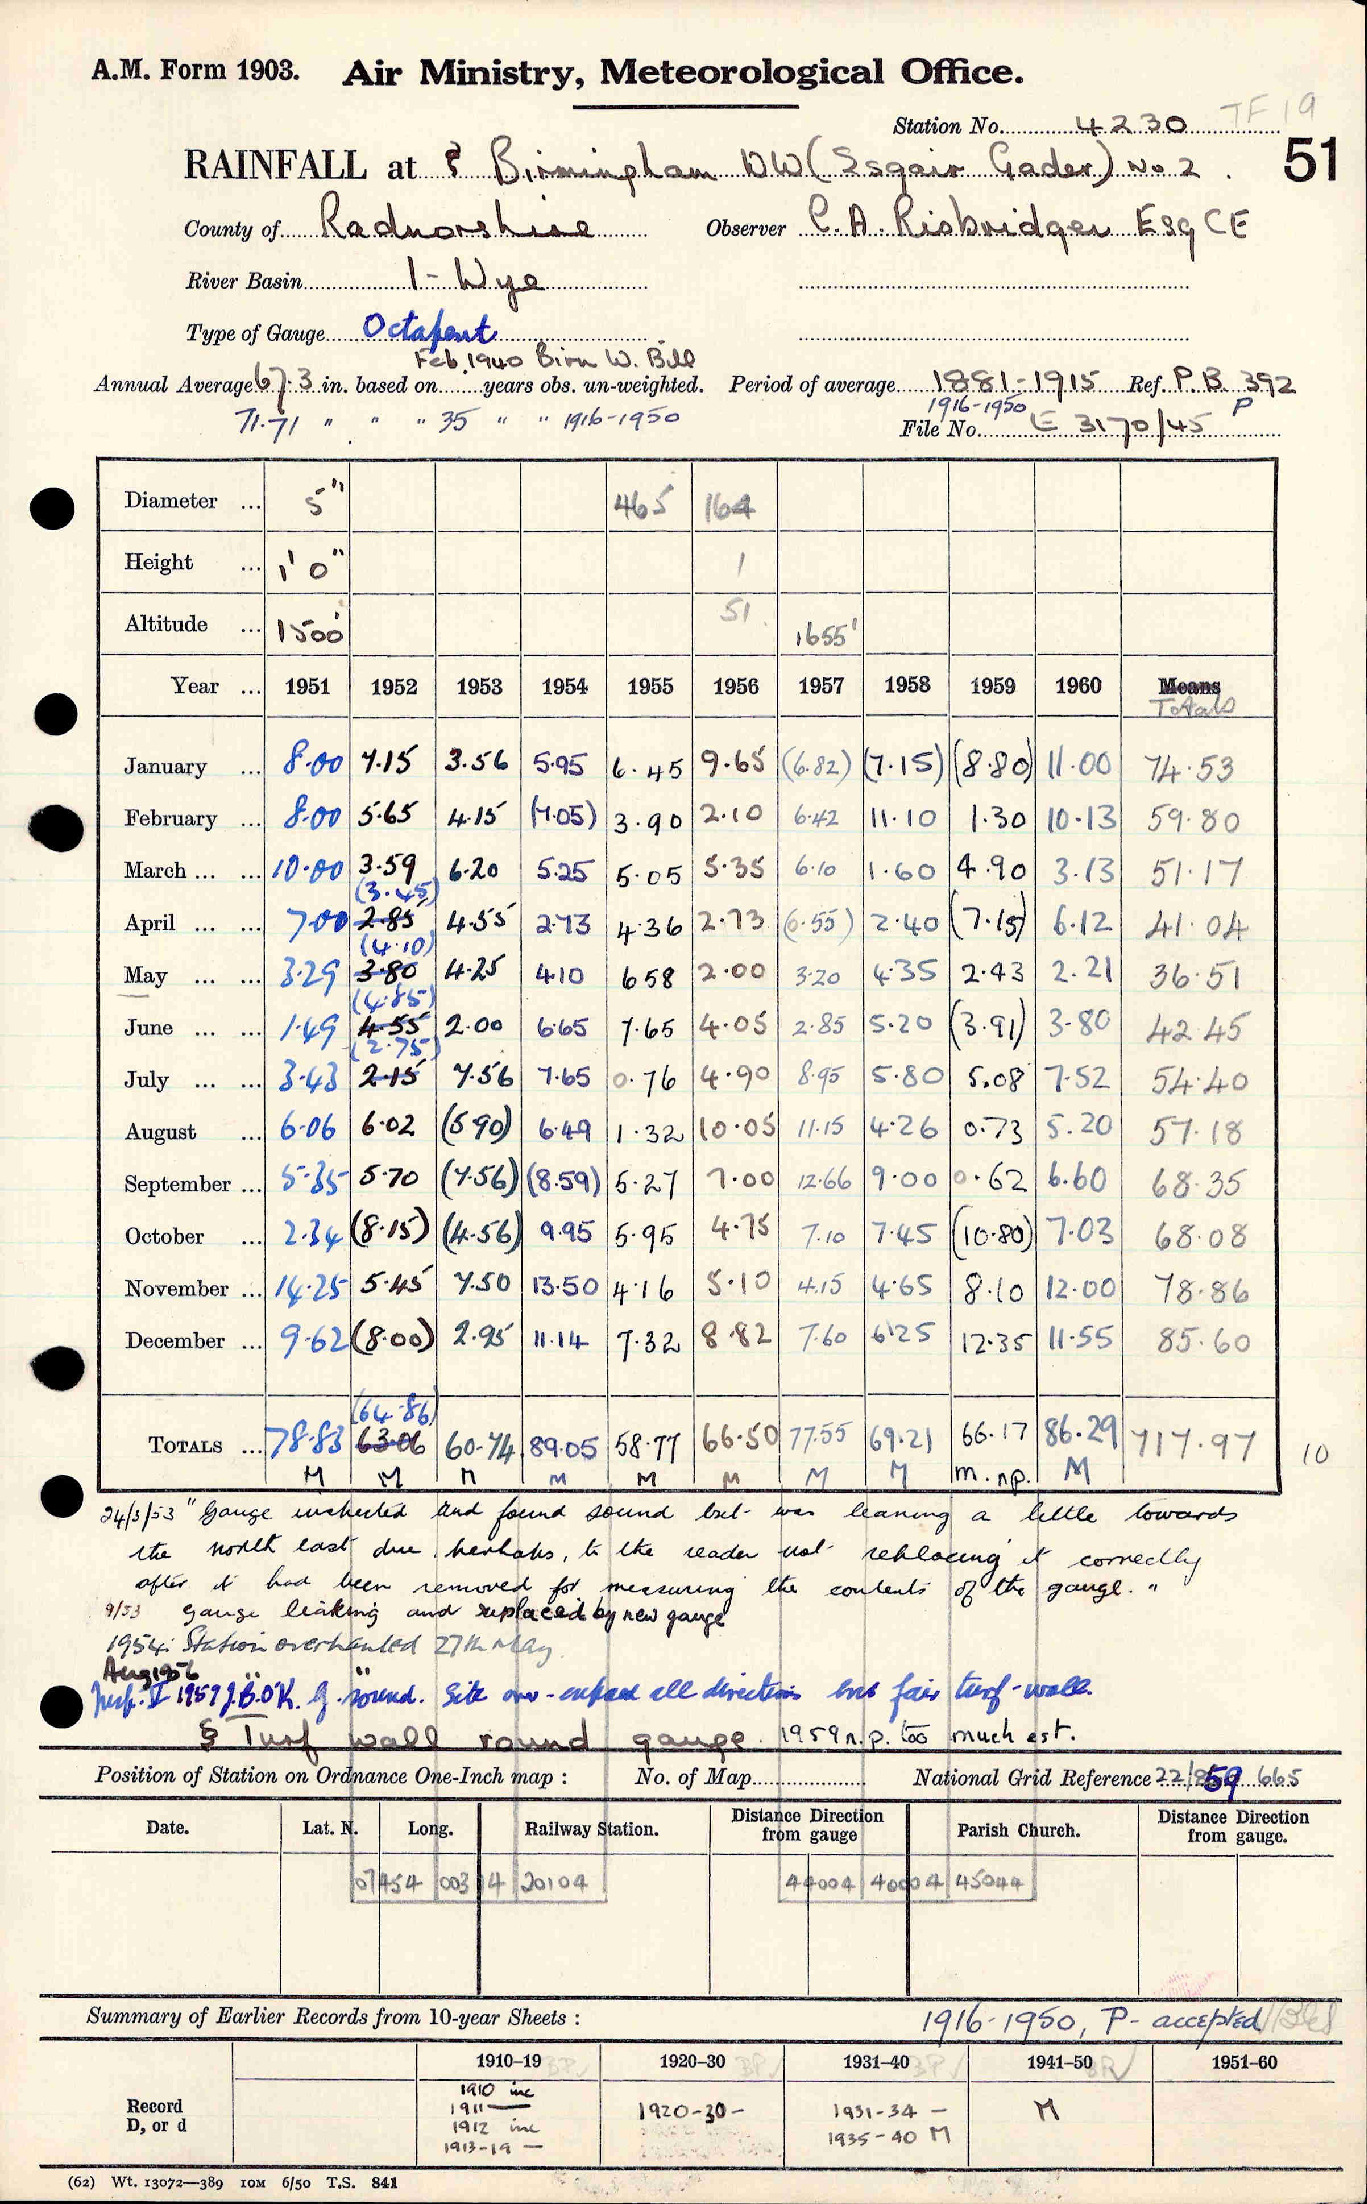 A.M. Form 1903. Air Ministry, Meteorological Office.
Station No. 4230 TF 19
51
RAINFALL at § Birmingham WW (Esgair Gader) No 2.
County of Radnorshire Observer C.A. Risbridger Esq CE
River Basin 1 - Wye
Type of Gauge Octapent
Feb. 1940 Birm W. Bill
Annual Average 67.3 in. based on years obs. un-weighted. Period of average 1881-1915 Ref. P.B. 392
71.71 " " " 35 " " 1916-1950 1916-1950 P
File No. E 3170/45
Diameter ... 5" 465 164
Height ... 1' 0" 1
Altitude ... 1500' 51 1655'
Year ... 1951 1952 1953 1954 1955 1956 1957 1958 1959 1960 Means
Totals
January ... 8.00 7.15 3.56 5.95 6.45 9.65 (6.82) (7.15) (8.80) 11.00 74.53
February ... 8.00 5.65 4.15 (7.05) 3.90 2.10 6.42 11.10 1.30 10.13 59.80
March ... ... 10.00 3.59 6.20 5.25 5.05 5.35 6.10 1.60 4.90 3.13 51.17
(3.45)
April ... ... 7.00 2.85 4.55 2.73 4.36 2.73 (6.55) 2.40 (7.15) 6.12 41.04
(4.10)
May ... ... 3.29 3.80 4.25 4.10 6.58 2.00 3.20 4.35 2.43 2.21 36.51
(4.85)
June ... ... 1.49 4.55 2.00 6.65 7.65 4.05 2.85 5.20 (3.91) 3.80 42.45
(2.75)
July ... ... 3.43 2.15 7.56 7.65 0.76 4.90 8.95 5.80 5.08 7.52 54.40
August ... 6.06 6.02 (5.90) 6.49 1.32 10.05 11.15 4.26 0.73 5.20 57.18
September ... 5.35 5.70 (7.56) (8.59) 5.27 7.00 12.66 9.00 0.62 6.60 68.35
October ... 2.34 (8.15) (4.56) 9.95 5.95 4.75 7.10 7.45 (10.80) 7.03 68.08
November ... 14.25 5.45 7.50 13.50 4.16 5.10 4.15 4.65 8.10 12.00 78.86
December ... 9.62 (8.00) 2.95 11.14 7.32 8.82 7.60 6.25 12.35 11.55 85.60
(64.86)
TOTALS ... 78.83 63.06 60.74 89.05 58.77 66.50 77.55 69.21 66.17 86.29 717.97 10
M M M M M M M M m. np. M
24/3/53 "Gauge inspected and found sound but was leaning a little towards
the north east due, perhaps, to the reader not replacing it correctly
after it had been removed for measuring the contents of the gauge."
9/53 Gauge leaking and replaced by new gauge
1954: Station overhauled 27th May.
Aug 1956
Insp. 1957 J.B. "O.K. g. sound. Site over-exposed all directions but fair turf-wall.
§ Turf wall round gauge. 1959 n.p. too much est.
Position of Station on Ordnance One-Inch map : No. of Map National Grid Reference 22/ 59 665
Date. Lat. N. Long. Railway Station. Distance Direction from gauge Parish Church. Distance Direction from gauge.
07454 00314 20104 44004 40004 45044
Summary of Earlier Records from 10-year Sheets : 1916-1950, P- accepted
1910-19 1920-30 1931-40 1941-50 1951-60
Record
D, or d
1910 inc
1911 —
1912 inc
1913-19 —
1920-30 -
1931-34 —
1935-40 M
M
(62) Wt. 13072—389 10M 6/50 T.S. 841